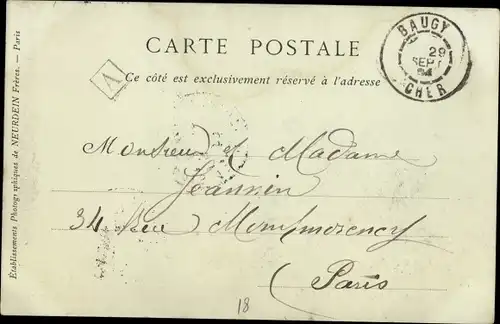 CARTE POSTALE
Ce côté est exclusivement réservé à l'adresse
BAUGY
29
SEPT
CHER
A
Monsieur et Madame
Joannin
34 Rue Montmorency
Paris
18
Etablissements Photographiques de NEURDEIN Frères. — Paris